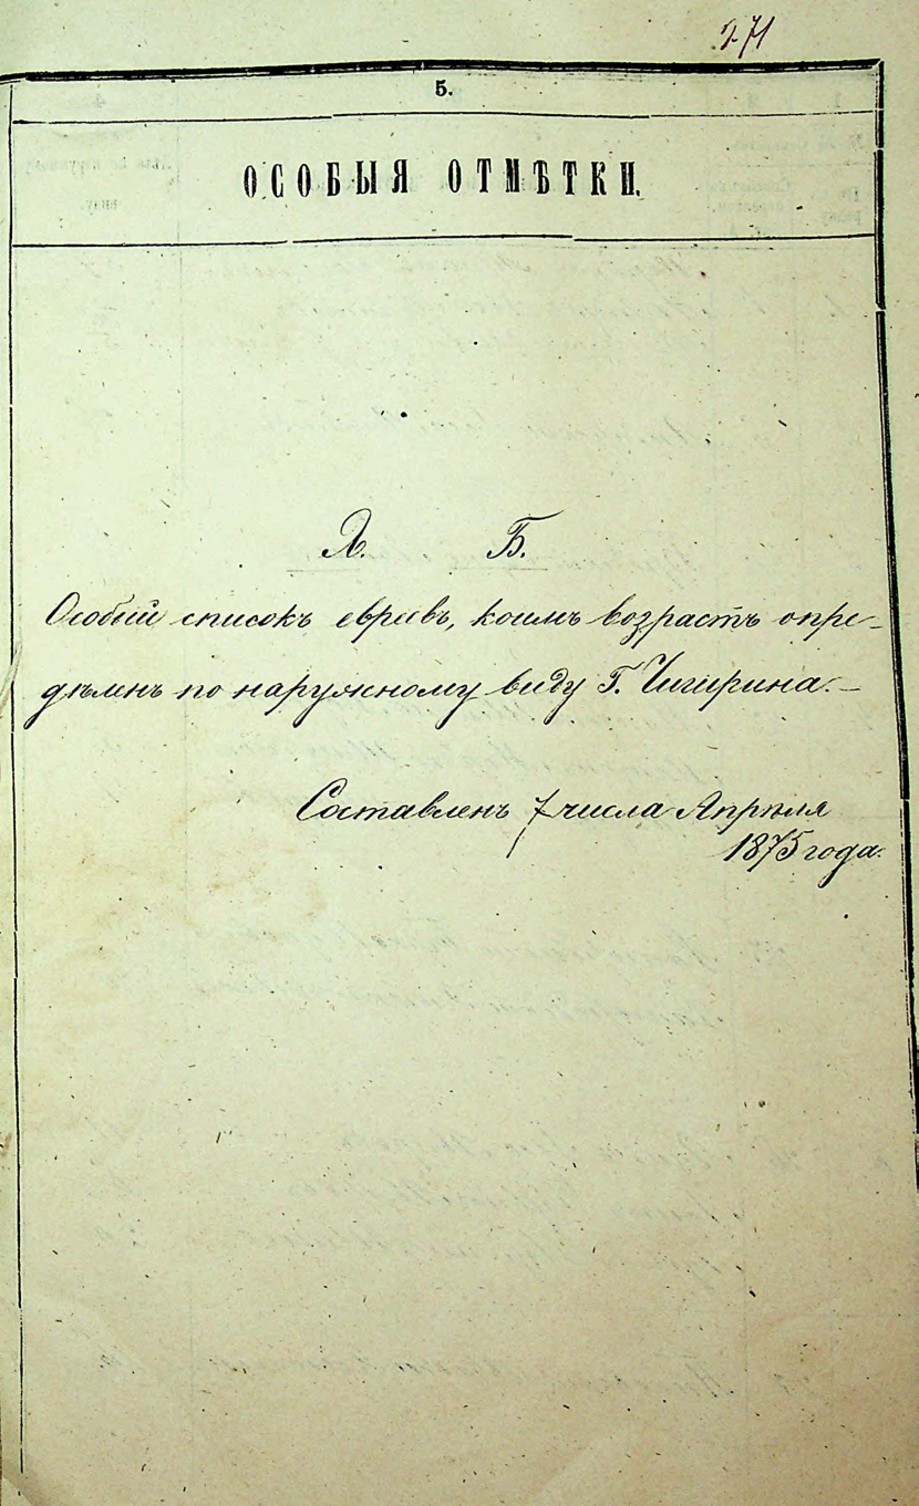 271
5.
ОСОБЫЯ ОТМѢТКИ.
А. Б.
Особый списокъ евреевъ, коимъ возрастъ опре-
дѣленъ по наружному виду Г. Чигирина.—
Составленъ 7 числа Апрѣля
1875 года.